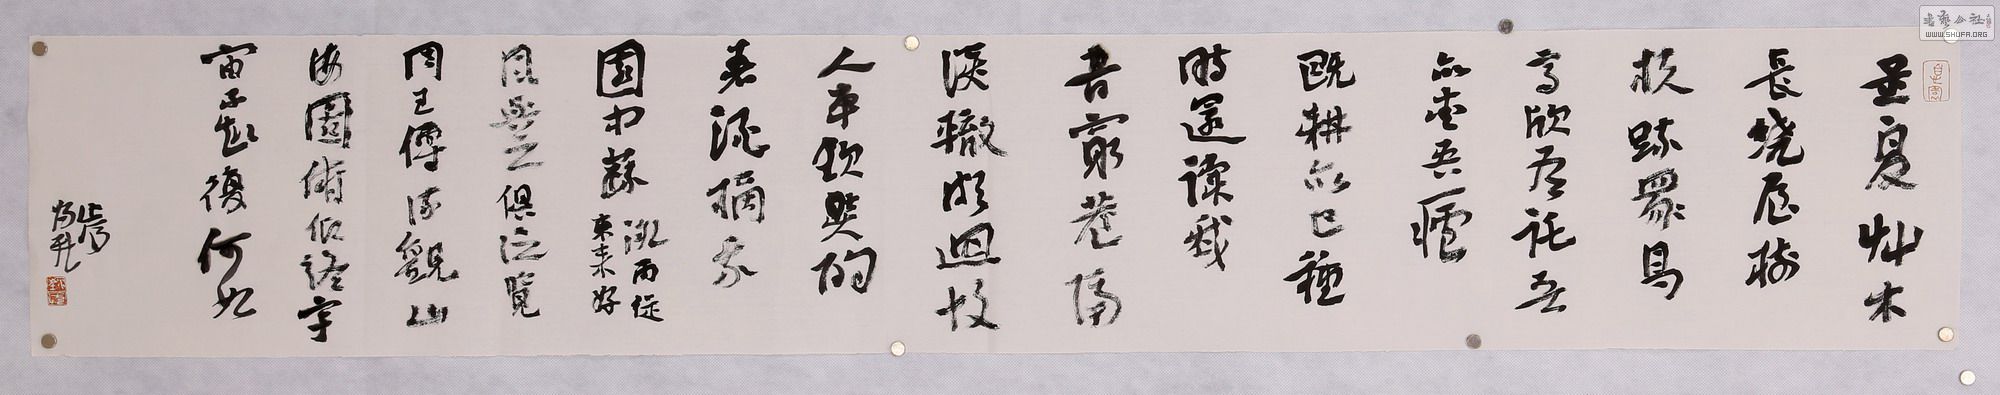 孟夏艸木
長繞屋樹
扶疏眾鳥
欣有託吾
亦愛吾廬
既耕亦已種
時還讀我
書窮巷隔
深轍頗迴故
人車歡然酌
春酒摘我
園中蔬微雨從
東來好
風與之俱泛覽
周王傳流觀山
海圖俯仰終宇
宙不樂復何如
书艺公社
WWW.SHUFA.ORG